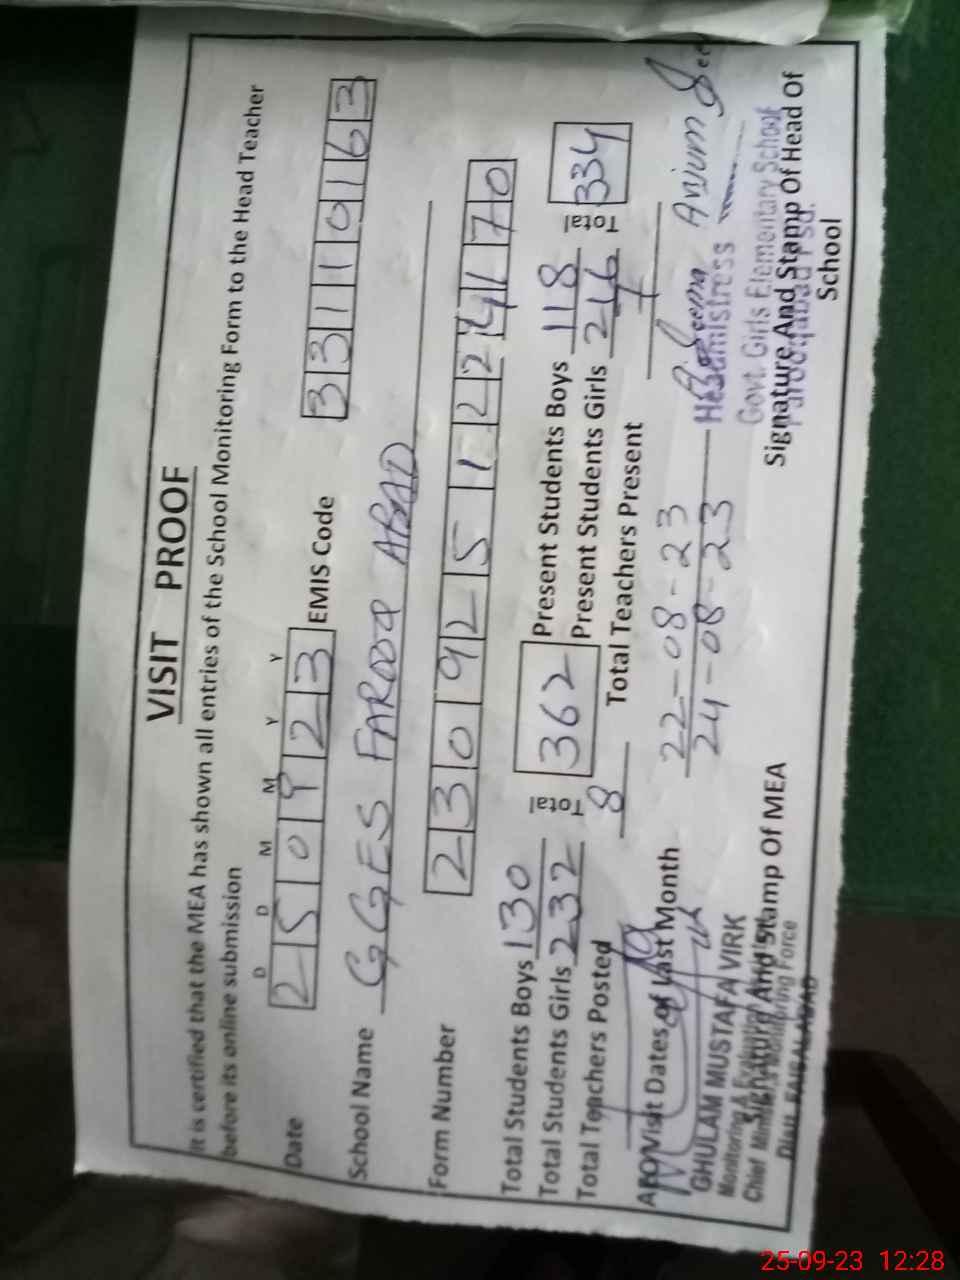 VISIT PROOF
It is certified that the MEA has shown all entries of the School Monitoring Form to the Head Teacher
before its online submission
D D M M Y Y
Date 2 5 0 9 2 3 EMIS Code 3 3 1 1 0 1 6 3
School Name GGES FAROOQ ABAD
Form Number 2 3 0 9 2 5 1 2 2 4 1 7 0
Total Students Boys 130 Total 362 Present Students Boys 118 Total 334
Total Students Girls 232 Present Students Girls 216
Total Teachers Posted 8 Total Teachers Present 7
Visit Dates of Last Month 22-08-23
24-08-23
Seema Anjum
GHULAM MUSTAFA VIRK
Headmistress
Monitoring & Evaluation
Govt. Girls Elementary School
Chief Monitoring Force
Farooqabad Fsd.
Distt. FAISALABAD
Signature And Stamp Of MEA
Signature And Stamp Of Head Of
School
25-09-23 12:28